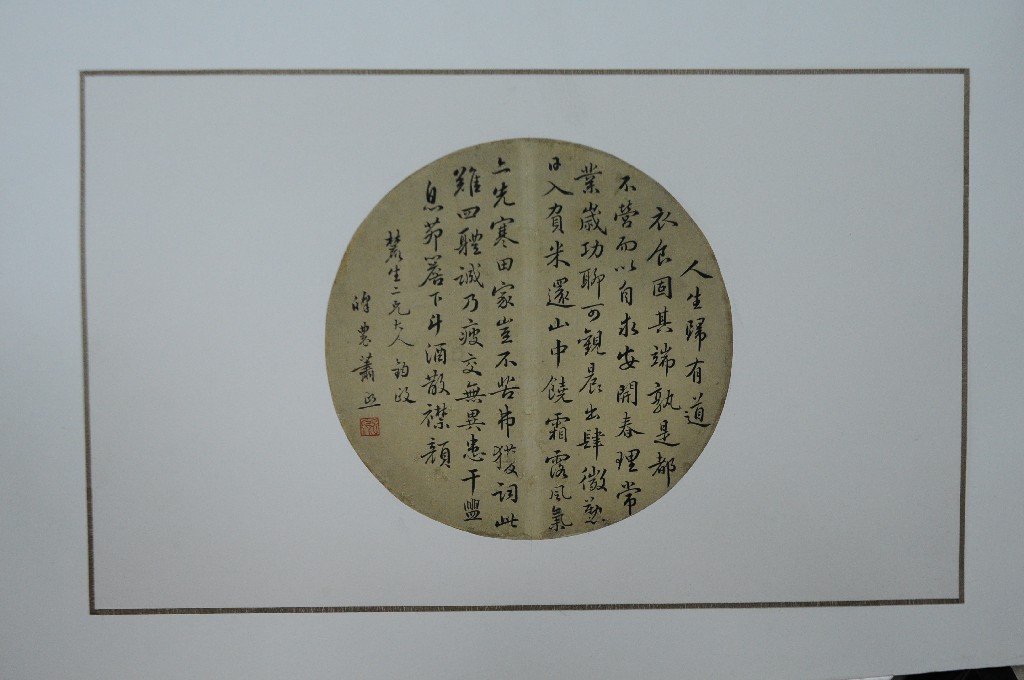 人生歸有道
衣食固其端孰是都
不營而以自求安開春理常
業歲功聊可觀晨出肆微懃
日入負米還山中饒霜露風氣
亦先寒田家豈不苦弗獲詞此
難四體誠乃疲交無異患干盥
息茆簷下斗酒散襟顏
生二兄大人鈞政
農蕭